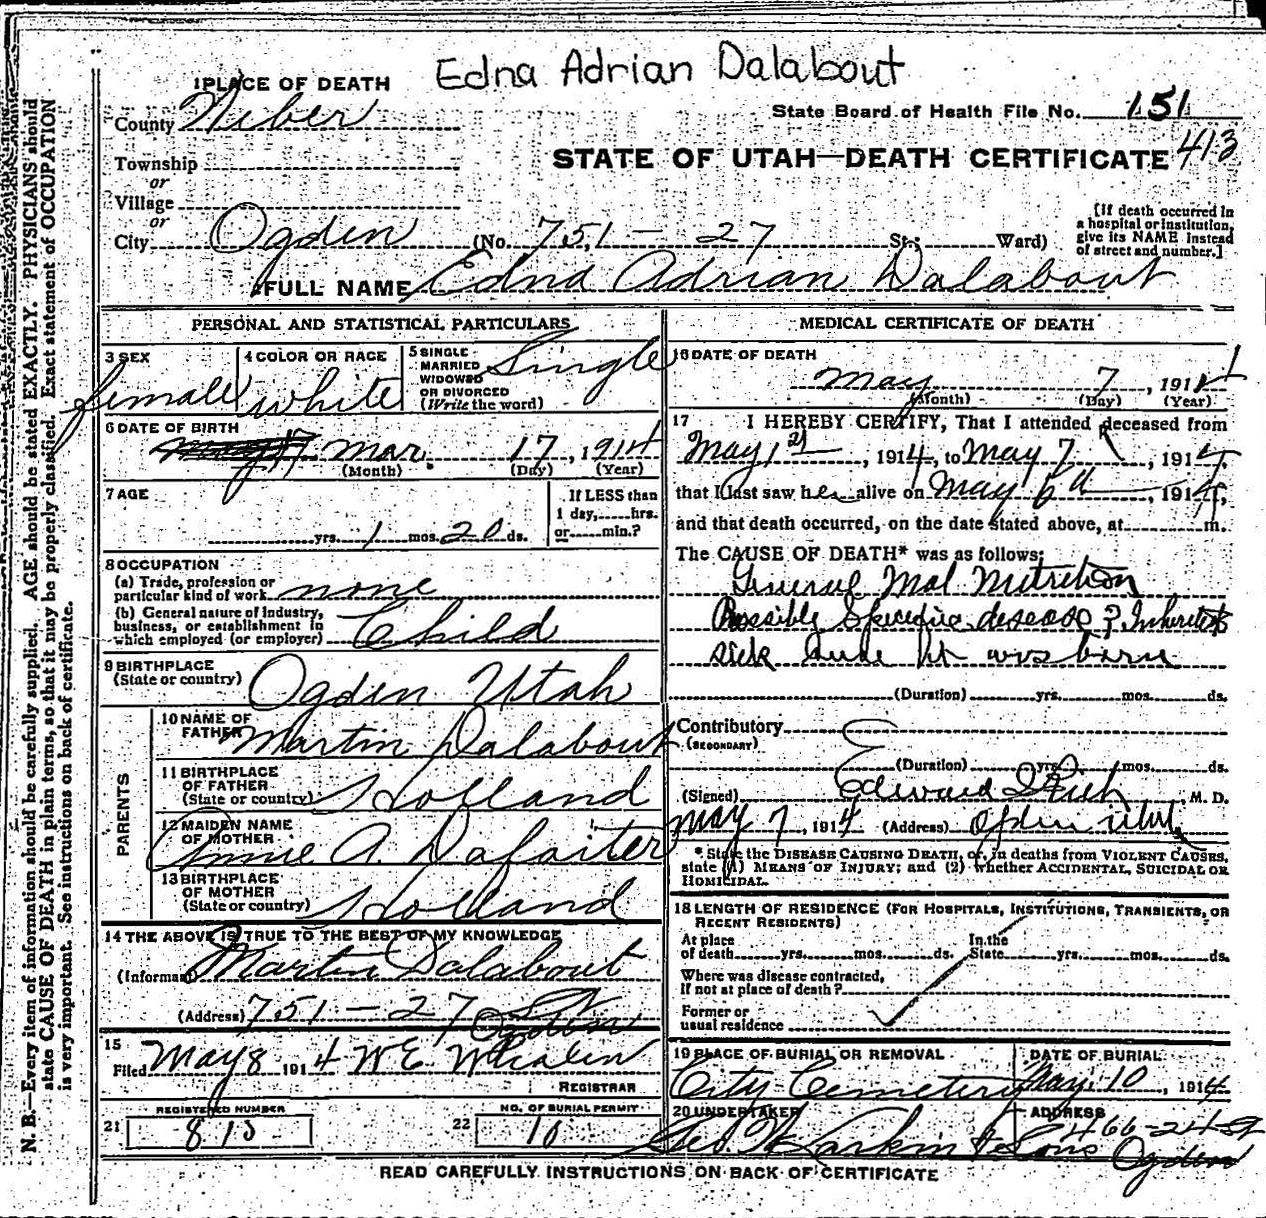 Edna Adrian Dalabout
1 PLACE OF DEATH
County Weber
State Board of Health File No. 151
413
Township
or
Village
or
STATE OF UTAH—DEATH CERTIFICATE
City Ogden (No. 751 - 27 St.; Ward)
[If death occurred in a hospital or institution, give its NAME instead of street and number.]
FULL NAME Edna Adrian Dalabout
PERSONAL AND STATISTICAL PARTICULARS
3 SEX
female
4 COLOR OR RACE
white
5 SINGLE MARRIED WIDOWED OR DIVORCED (Write the word)
Single
6 DATE OF BIRTH
Mar 17, 1914
(Month) (Day) (Year)
7 AGE
yrs. 1 mos. 20 ds.
If LESS than 1 day, hrs. or min.?
8 OCCUPATION
(a) Trade, profession or particular kind of work none
(b) General nature of industry, business, or establishment in which employed (or employer) Child
9 BIRTHPLACE (State or country)
Ogden Utah
PARENTS
10 NAME OF FATHER Martin Dalabout
11 BIRTHPLACE OF FATHER (State or country) Holland
12 MAIDEN NAME OF MOTHER Annie A.
13 BIRTHPLACE OF MOTHER (State or country) Holland
14 THE ABOVE IS TRUE TO THE BEST OF MY KNOWLEDGE
(Informant) Martin Dalabout
(Address) 751 - 27 St
Ogden
15
Filed May 8 1914 W E Whalen
REGISTRAR
REGISTERED NUMBER
21
NO. OF BURIAL PERMIT
22 10
MEDICAL CERTIFICATE OF DEATH
16 DATE OF DEATH
May 7, 1914
(Month) (Day) (Year)
17 I HEREBY CERTIFY, That I attended deceased from
May 1st, 1914, to May 7, 1914,
that I last saw her alive on May 6th, 1914,
and that death occurred, on the date stated above, at m.
The CAUSE OF DEATH* was as follows:
General Mal Nutrition
Possible Specific disease ? Inherited
sick was born
(Duration) yrs. mos. ds.
Contributory
(SECONDARY)
(Duration) yrs. mos. ds.
(Signed) Edward I Rich, M. D.
May 7, 1914 (Address) Ogden Utah
* State the DISEASE CAUSING DEATH, or, in deaths from VIOLENT CAUSES,
state (1) MEANS OF INJURY; and (2) whether ACCIDENTAL, SUICIDAL OR
HOMICIDAL.
18 LENGTH OF RESIDENCE (FOR HOSPITALS, INSTITUTIONS, TRANSIENTS, OR
RECENT RESIDENTS)
At place of death yrs. mos. ds. In the State yrs. mos. ds.
Where was disease contracted,
If not at place of death?
Former or
usual residence
19 PLACE OF BURIAL OR REMOVAL
City Cemetery
DATE OF BURIAL
May 10, 1914
20 UNDERTAKER
Larkin & Sons
ADDRESS
466-24 St
Ogden
READ CAREFULLY INSTRUCTIONS ON BACK OF CERTIFICATE
N. B.—Every item of information should be carefully supplied. AGE should be stated EXACTLY. PHYSICIANS should
state CAUSE OF DEATH in plain terms, so that it may be properly classified. Exact statement of OCCUPATION
is very important. See instructions on back of certificate.